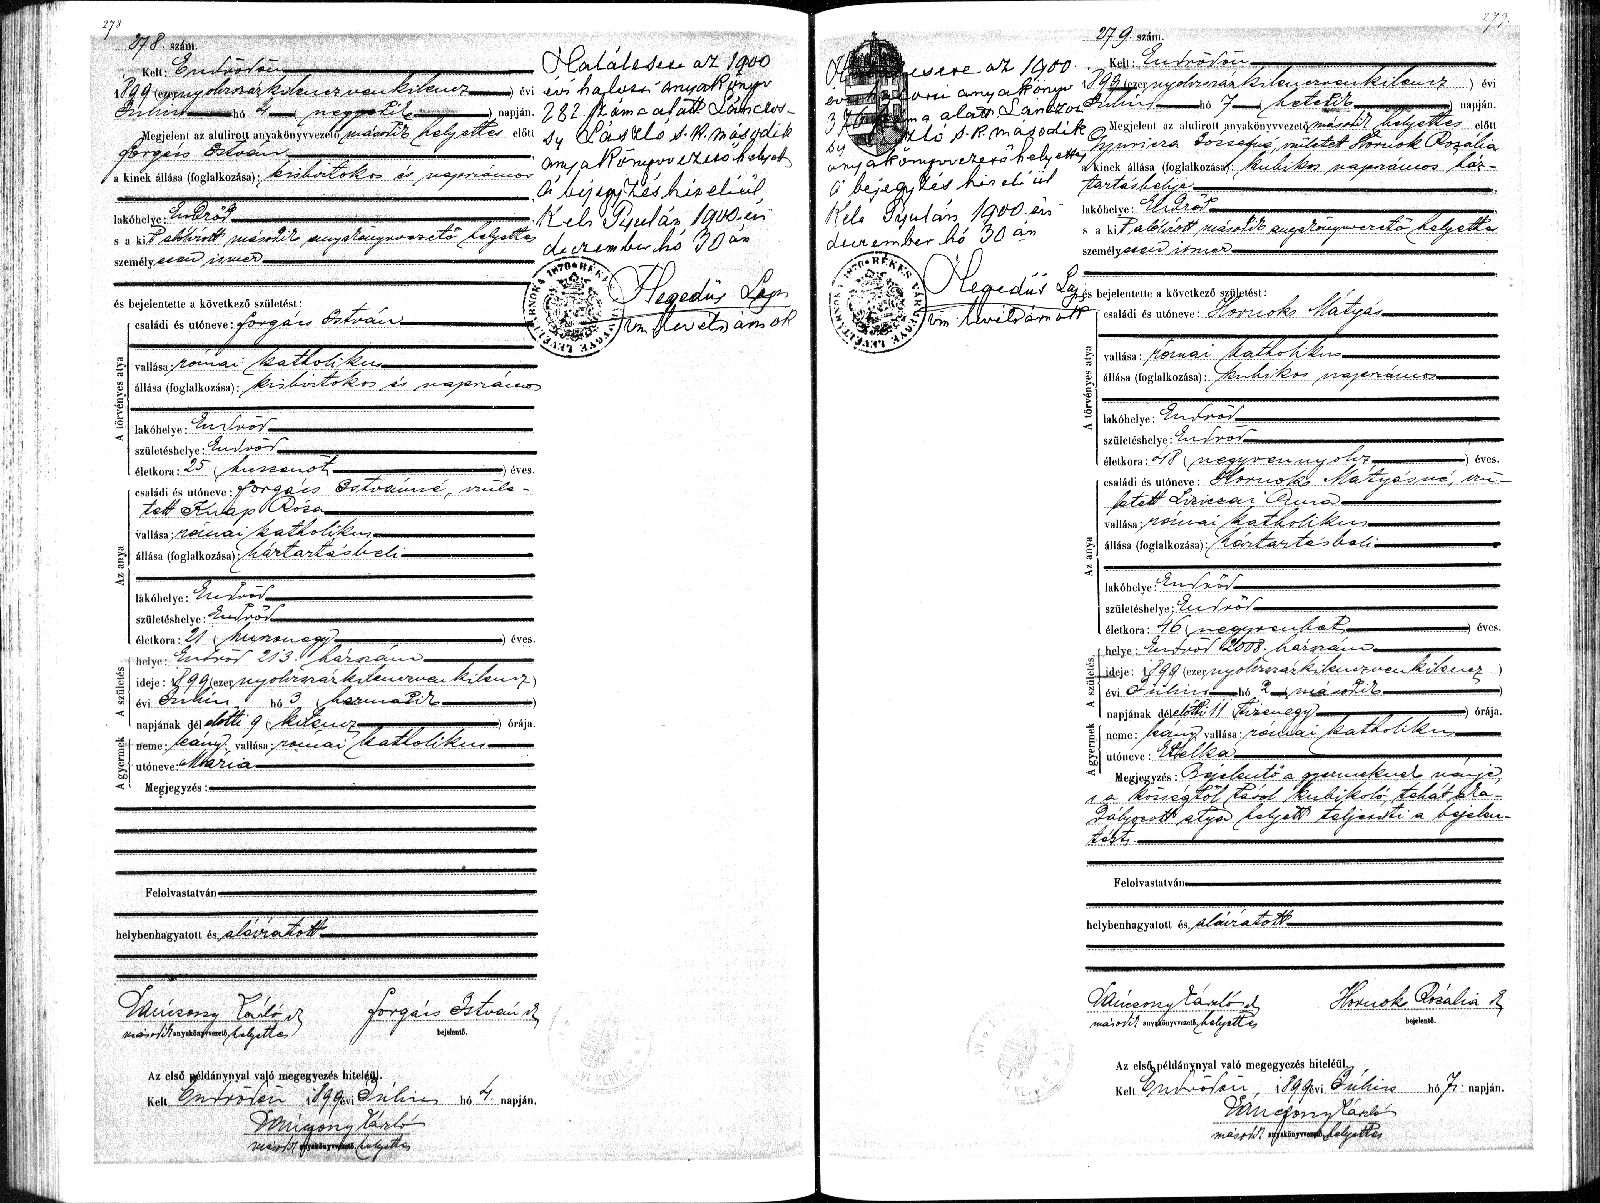 278
278. szám.
Kelt: Endrődön
1899 (ezer nyolczszázkilenczvenkilencz) évi
Július hó 4 (negyedik) napján.
Megjelent az alulirott anyakönyvvezető második helyettes előtt
Forgács István
a kinek állása (foglalkozása): kisbirtokos és napszámos
lakóhelye: Endrőd
s a kit alólírott második anyakönyvvezető helyettes
személyesen ismer
és bejelentette a következő születést:
A törvényes atya
családi és utóneve: Forgács István
vallása: római katholikus
állása (foglalkozása): kisbirtokos és napszámos
lakóhelye: Endrőd
születéshelye: Endrőd
életkora: 25 (huszonöt) éves.
Az anya
családi és utóneve: Forgács Istvánné, szüle-
tett Knap Róza
vallása: római katholikus
állása (foglalkozása): háztartásbeli
lakóhelye: Endrőd
születéshelye: Endrőd
életkora: 21 (huszonegy) éves.
A születés
helye: Endrőd 213. házszám
ideje: 1899 (ezer nyolczszázkilenczvenkilencz)
évi Július hó 3 (harmadik)
napjának dél előtti 9 (kilencz) órája.
A gyermek
neme: leány, vallása: római katholikus
utóneve: Mária
Megjegyzés:
Felolvastatván
helybenhagyatott és aláíratott
Vánčsony László
második anyakönyvvezető helyettes
Forgács István
bejelentő.
Az első példánynyal való megegyezés hiteléül.
Kelt Endrődön 1899 évi Július hó 4. napján.
második anyakönyvvezető helyettes
Halálesete az 1900
évi halotti anyakönyv
282 száma alatt
László s.k. második
anyakönyvvezető helyett
A bejegyzés hiteléül
Kelt Gyulán 1900 évi
deczember hó 30 án
Hegedüs Lajos
vm. levéltárnok
279.
279. szám.
Kelt: Endrődön
1899 (ezer nyolczszázkilenczvenkilencz) évi
Július hó 7 (hetedik) napján.
Megjelent az alulirott anyakönyvvezető második helyettes előtt
született Hornok Rozália
a kinek állása (foglalkozása): kubikos napszámos ház-
tartásbelije
lakóhelye: Endrőd
s a kit alólírott második anyakönyvvezető helyettes
személyesen ismer
és bejelentette a következő születést:
A törvényes atya
családi és utóneve: Hornok Mátyás
vallása: római katholikus
állása (foglalkozása): kubikos napszámos
lakóhelye: Endrőd
születéshelye: Endrőd
életkora: 48 (negyvennyolcz) éves.
Az anya
családi és utóneve: Hornok Mátyásné, szü-
letett Anna
vallása: római katholikus
állása (foglalkozása): háztartásbeli
lakóhelye: Endrőd
születéshelye: Endrőd
életkora: 46 (negyvenhat) éves.
A születés
helye: Endrőd 2008. házszám
ideje: 1899 (ezer nyolczszázkilenczvenkilencz)
évi Július hó 2 (második)
napjának dél előtti 11 (tizenegy) órája.
A gyermek
neme: leány vallása: római katholikus
utóneve: Etelka
Megjegyzés: Bejelentő a gyermeknek nénje,
s a községtől távol kubikoló, tehát aka-
dályozott atya helyett teljesíti a bejelen-
tést.
Felolvastatván
helybenhagyatott és aláíratott
második anyakönyvvezető helyettes
Hornok Rozália
bejelentő.
Az első példánynyal való megegyezés hiteléül.
Kelt Endrődön 1899 évi Július hó 7. napján.
második anyakönyvvezető helyettes
esete az 1900
évi halotti anyakönyv
száma alatt
László s.k. második
anyakönyvvezető helyettes
A bejegyzés hiteléül
Kelt Gyulán 1900 évi
deczember hó 30 án
Hegedüs Lajos
vm. levéltárnok
BÉKÉS VÁRMEGYE LEVÉLTÁRNOKA 1876